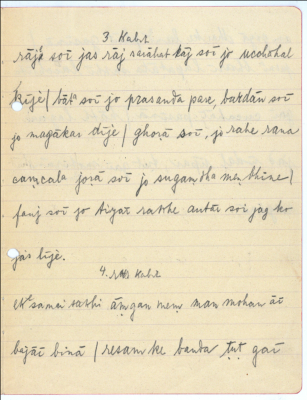 3. Kabit
rājā soī jas rāj rarābat kāj soī jo ucchohal
kījē / bāta soī jo prasanda pare, bardān soī
jo magākas dījē / ghoṛā soī, jo rahe rana
caṃcala joṛā soī jo sugaṃdha meṃ bhīne /
fauj soī jo tiyāī rakhe antar soī jag ko
jas lījē.
4. Kabit
ek samai sakhi āṃgan meṃ man mohan āī
bajāī bīnā / resam ke banda ṭuṭ gaī